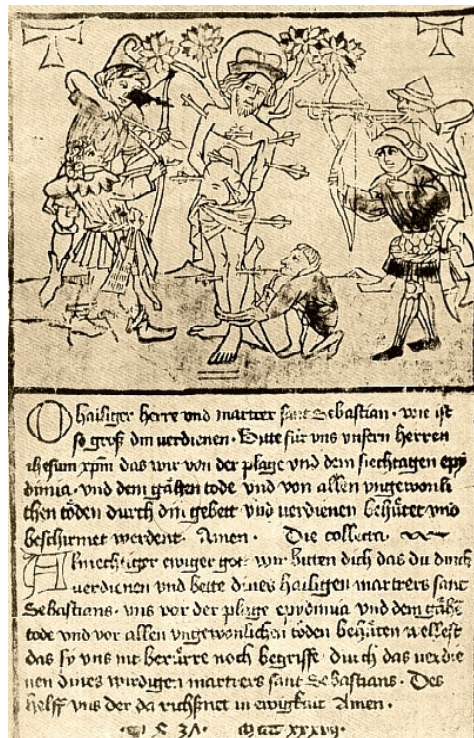 O hailiger herre vnd martrer sant Sebastian · wie ist
so groß din verdienen · Bitte für vns vnsern herren
ihesum xpm̄ das wir von der plage vnd dem siechtagen epy
dimia · vnd dem gähen tode vnd von allen vngewonli
chen töden durch din gebett vnd verdienen behütet vnd
beschirmet werdent · Amen · Die collecta
Almechtiger ewiger got · wir bitten dich das du durch
verdienen vnd bette dines hailigen martrers sant
Sebastians · vns vor der plage epydimia vnd dem gähē
tode vnd vor allen vngewonlichen töden behüten wellest
das sy vns nit berürre noch begriffe durch das verdie
nen dines wirdigen martrers sant Sebastians · Des
helff vns der da richsnet in ewigkait Amen ·
MCCCC XXXVII ·